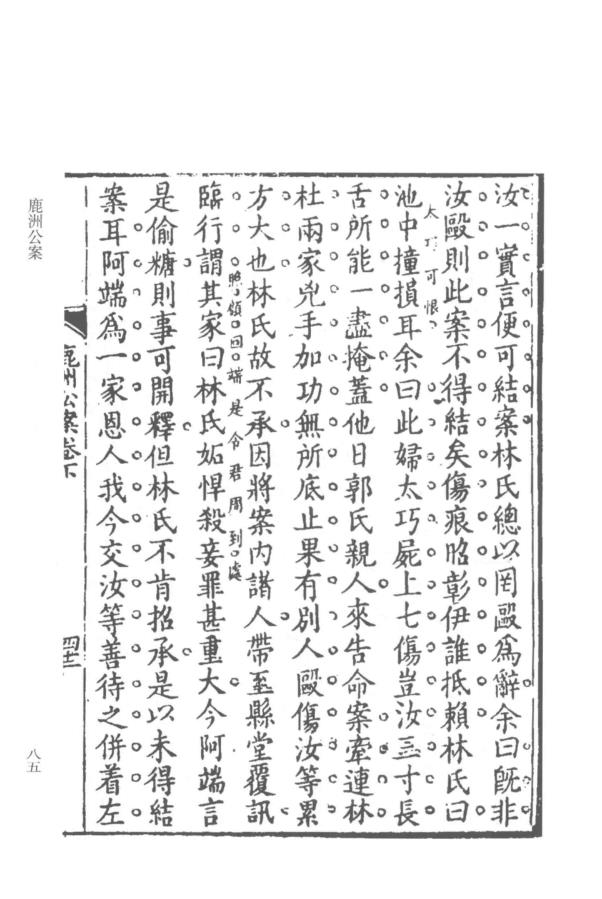 汝一實言便可結案林氏總以罔毆爲辭余曰旣非
汝毆則此案不得結矣傷痕昭彰伊誰抵賴林氏曰
池中撞損耳余曰此婦太巧屍上七傷豈汝三寸長
太巧可恨
舌所能一盡掩蓋他日郭氏親人來告命案牽連林
杜兩家兇手加功無所底止果有別人毆傷汝等累
方大也林氏故不承因將案內諸人帶至縣堂覆訊
臨行謂其家曰林氏妬悍殺妾罪甚重大今阿端言
照顧回端是令君周到處
是偷糖則事可開釋但林氏不肯招承是以未得結
案耳阿端爲一家恩人我今交汝等善待之併着左
鹿洲公案卷下
四十三
鹿洲公案
八五